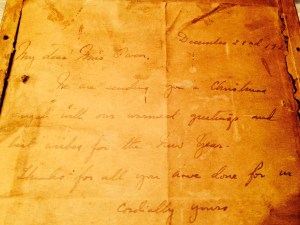 December 23rd, 19
My dear Miss
We are sending you a Christmas
with our warmest greetings and
best wishes for the New Year.
Thanks for all you have done for us
Cordially yours